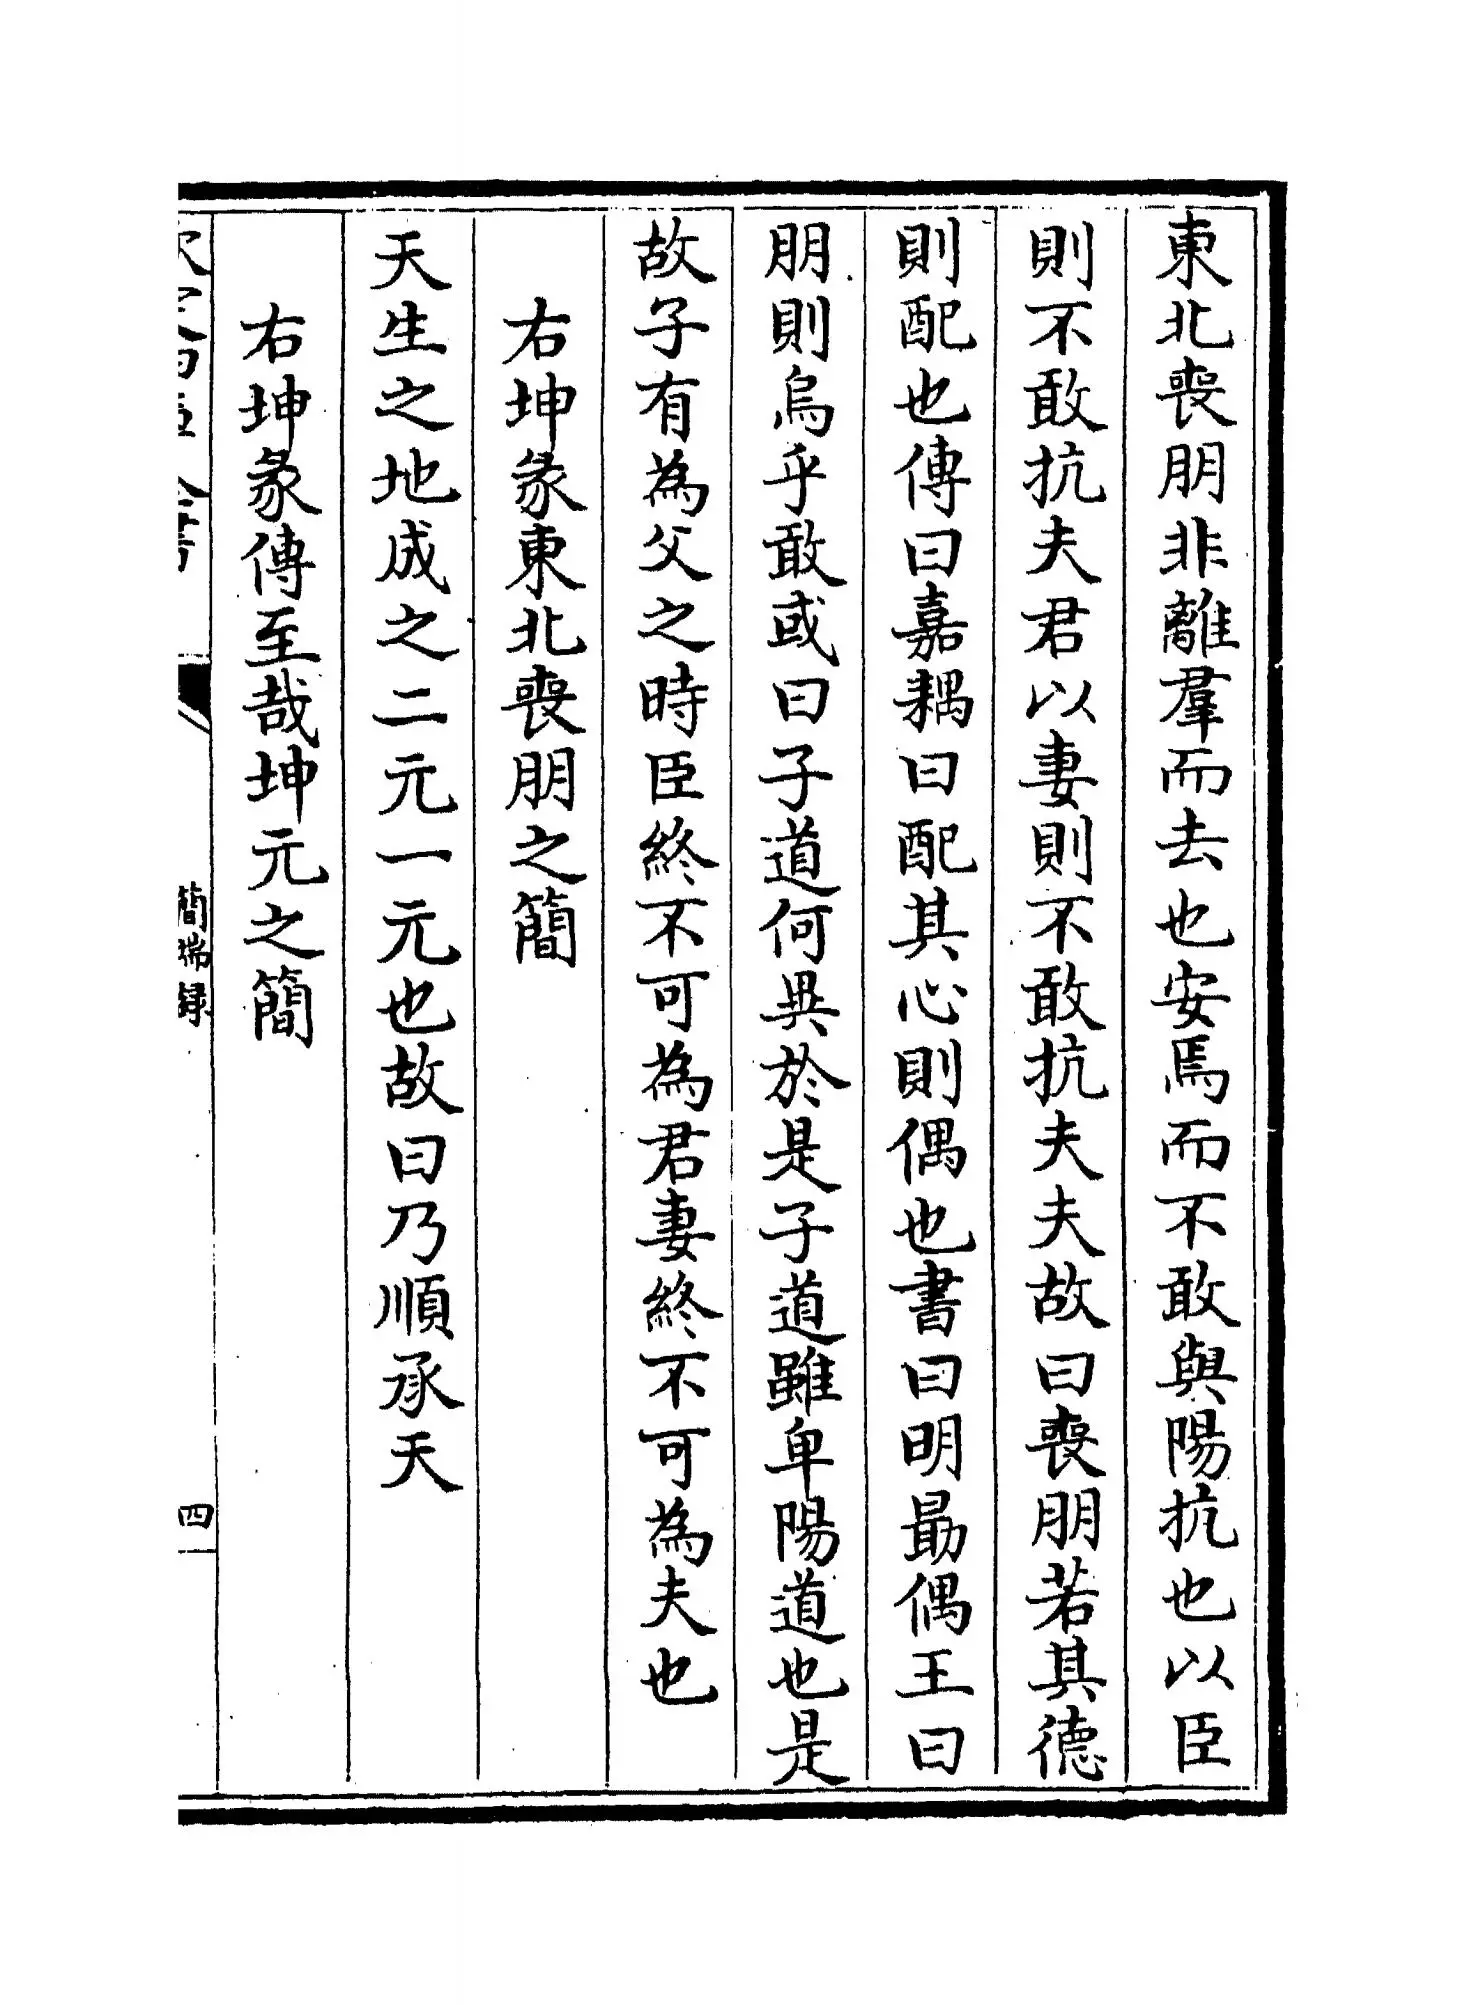 東北喪朋非離羣而去也安焉而不敢與陽抗也以臣
則不敢抗夫君以妻則不敢抗夫夫故曰喪朋若其德
則配也傳曰嘉耦曰配其心則偶也書曰明勗偶王曰
朋則烏乎敢或曰子道何異於是子道雖卑陽道也是
故子有為父之時臣終不可為君妻終不可為夫也
右坤彖東北喪朋之簡
天生之地成之二元一元也故曰乃順承天
右坤彖傳至哉坤元之簡
簡端録
四